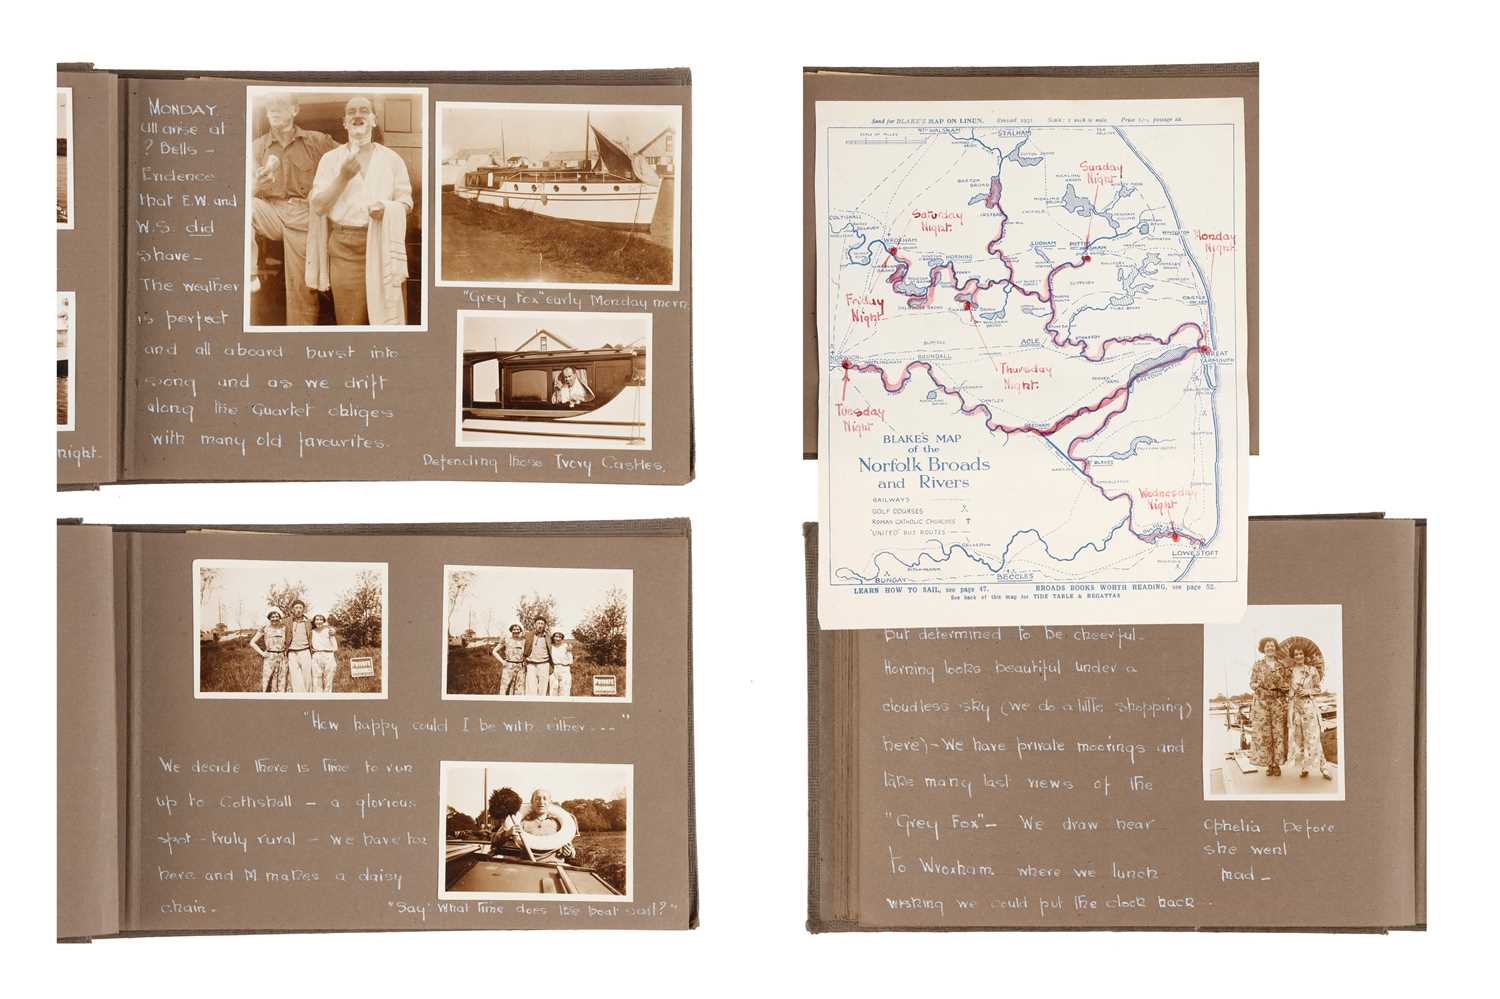 MONDAY.
All arise at
? Bells –
Evidence
that E.W. and
W.S. did
shave –
The weather
is perfect
and all aboard burst into
song and as we drift
along the Quartet obliges
with many old favourites.
"Grey Fox" early Monday morn.
Defending those Ivory Castles.
night.
"How happy could I be with either - - - "
We decide there is time to run
up to Coltishall – a glorious
spot – truly rural – we have tea
here and M. makes a daisy
chain.
"Say! What time does the boat sail?"
Send for BLAKE'S MAP ON LINEN. Revised 1931. Scale: 1 inch to mile.
STALHAM
BARTON BROAD
HICKLING BROAD
Sunday
Night.
Saturday
Night.
Monday
Night.
WROXHAM
HORNING
LUDHAM
POTTER
Friday
Night
ACLE
NORWICH
BRUNDALL
GREAT
YARMOUTH
Thursday
Night.
Tuesday
Night
CANTLEY
REEDHAM
BLAKE'S MAP
of the
Norfolk Broads
and Rivers
RAILWAYS
GOLF COURSES
ROMAN CATHOLIC CHURCHES
"UNITED" BUS ROUTES
Wednesday
Night
LOWESTOFT
BUNGAY
BECCLES
LEARN HOW TO SAIL, see page 47. BROADS BOOKS WORTH READING, see page 52.
See back of this map for TIDE TABLE & REGATTAS
but determined to be cheerful.
Horning looks beautiful under a
cloudless sky (we do a little shopping
here) – We have private moorings and
take many last views of the
"Grey Fox" – We draw near
to Wroxham where we lunch
wishing we could put the clock back.
Ophelia before
she went
mad –